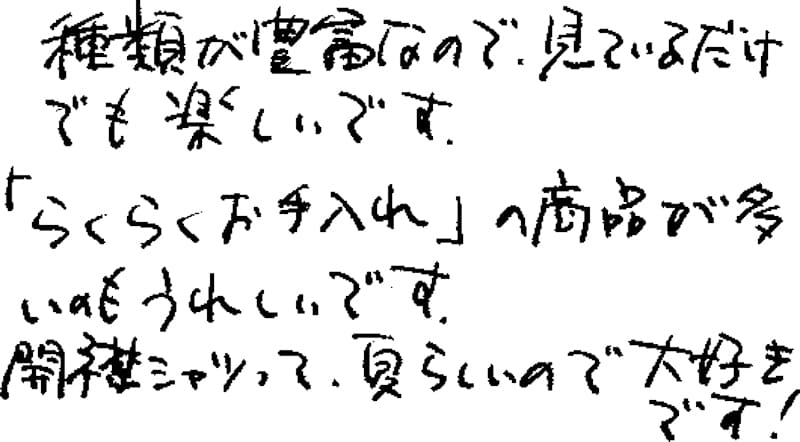 種類が豊富なので、見ているだけ
でも楽しいです。
「らくらくお手入れ」の商品が多
いのもうれしいです。
開襟シャツって、夏らしいので大好き
です!